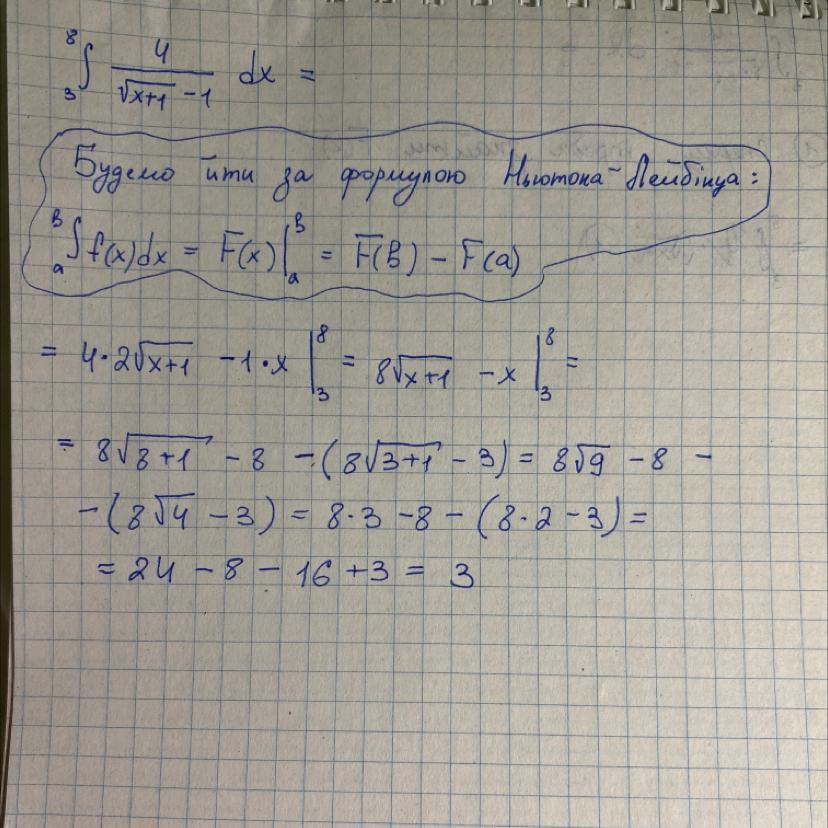 ₃⁸∫ 4/(√(x+1) - 1) dx =
Будемо йти за формулою Ньютона-Лейбінца:
ₐᵇ∫ f(x)dx = F(x)|ₐᵇ = F(b) - F(a)
= 4·2√(x+1) - 1·x |₃⁸ = 8√(x+1) - x |₃⁸ =
= 8√(8+1) - 8 - (8√(3+1) - 3) = 8√9 - 8 -
- (8√4 - 3) = 8·3 - 8 - (8·2 - 3) =
= 24 - 8 - 16 + 3 = 3